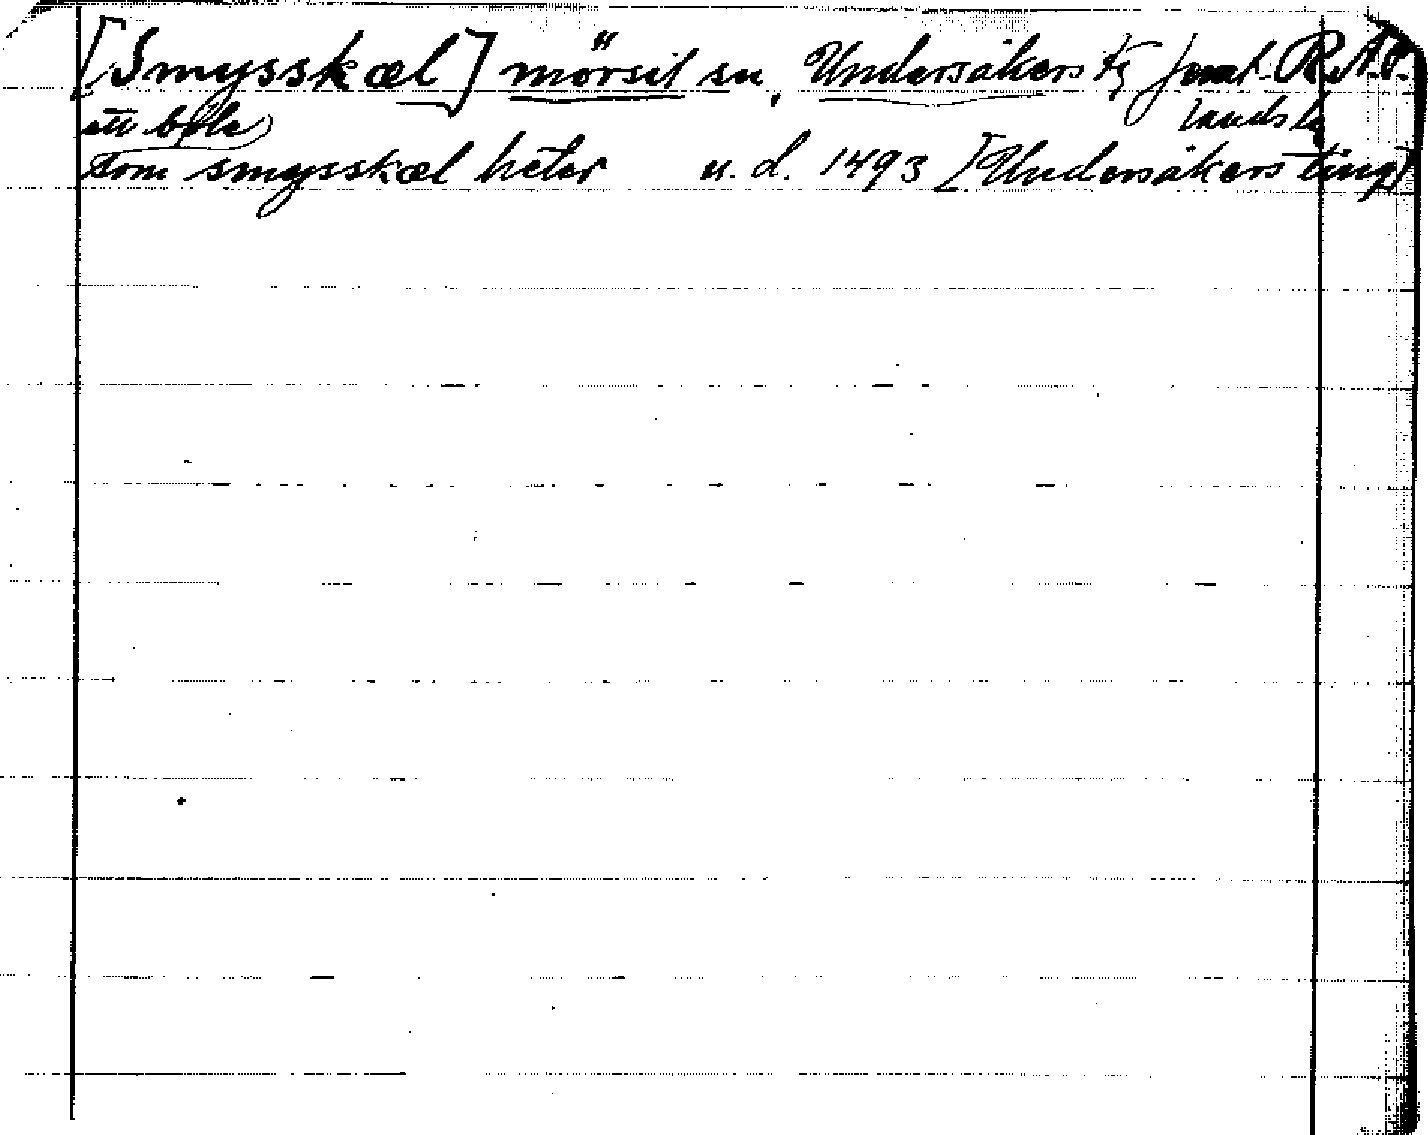 [Smysskæl] mörsil sn, Undersåkers tg Jämt- R.A.O.
ett bøle lands l
som smysskæl heter u. d. 1493 [Undersåkers ting]